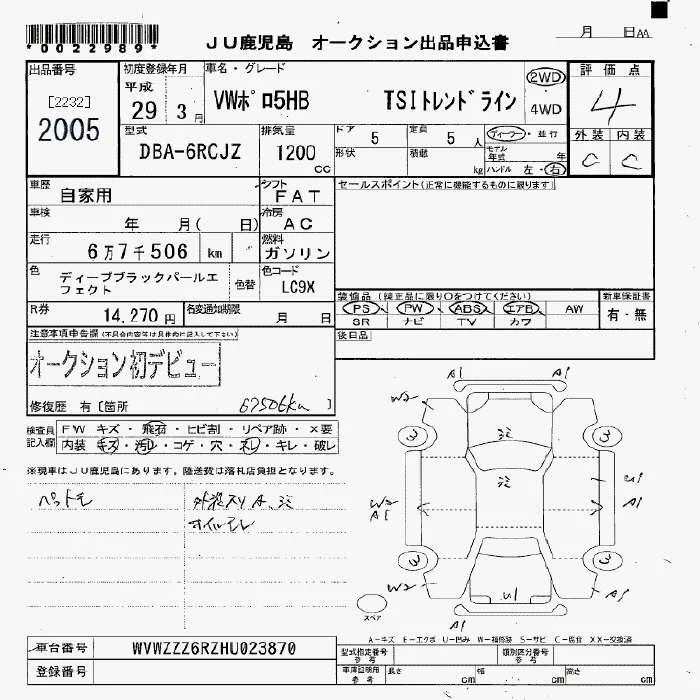 *0022989*
JU鹿児島 オークション出品申込書
月 日AA
出品番号
[2232]
2005
初度登録年月
平成
29 3月
車名・グレード
VWポロ5HB TSIトレンドライン
2WD
4WD
評価点
4
外装 内装
C C
型式
DBA-6RCJZ
排気量
1200
cc
ドア 5
定員 5人
形状
積載 kg
ディーラー・並行
モデル年式 年
ハンドル 左・右
車歴
自家用
シフト
FAT
セールスポイント(正常に機能するものに限ります)
車検
年 月( 日)
冷房
AC
走行
6万7千506 km
燃料
ガソリン
色
ディープブラックパールエフェクト
色替
色コード
LC9X
装備品(純正品に限り○をつけてください)
PS PW ABS エアB AW
SR ナビ TV カワ
新車保証書
有・無
R券
14,270円
名変通知期限
月 日
後日品
注意事項申告欄(不具合内容等は具体的に記入して下さい)
オークション初デビュー
修復歴 有[箇所 67506km ]
検査員記入欄
FW キズ・飛石・ヒビ割・リペア跡・×要
内装 キズ・汚レ・コゲ・穴・スレ・キレ・破レ
※現車はJU鹿児島にあります。陸送費は落札店負担となります。
オイルモレ
A1 A1
W2
3 3
U1
W2
A1 A1
3 3
W2 U1 A1
A1
スペア
A-キズ E-エクボ U-凹み W-補修跡 S-サビ C-腐食 XX-交換済
車台番号
WVWZZZ6RZHU023870
登録番号
型式指定番号
参考
類別区分番号
参考
車庫証明用
参考
長さ cm
幅 cm
高さ cm